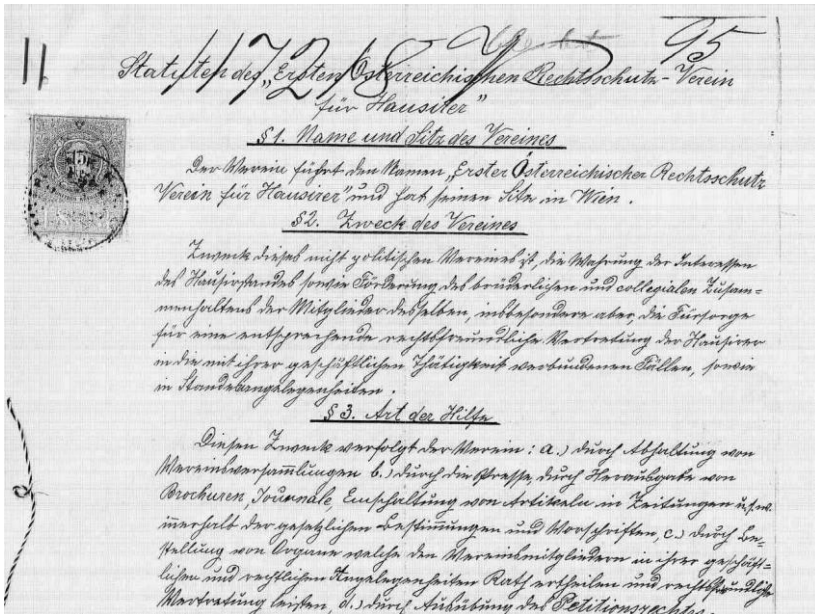 11
17218 95
Statuten des „Ersten Österreichischen Rechtsschutz-Verein
für Hausirer"
§ 1. Name und Sitz des Vereines
Der Verein führt den Namen „Erster Österreichischer Rechtsschutz
Verein für Hausirer" und hat seinen Sitz in Wien.
§ 2. Zweck des Vereines
Zweck dieses nicht politischen Vereines ist, die Wahrung der Interessen
des Hausirstandes sowie Förderung des brüderlichen und collegialen Zusam=
menhaltens der Mitglieder desselben, insbesondere aber, die Fürsorge
für eine entsprechende rechtsfreundliche Vertretung der Hausirer
in die mit ihrer geschäftlichen Thätigkeit verbundenen Fällen, sowie
in Standesangelegenheiten.
§ 3. Art der Hilfe
Diesen Zweck verfolgt der Verein: a.) durch Abhaltung von
Vereinsversammlungen b.) durch die Presse, durch Herausgabe von
Brochuren, Journale, Einschaltung von Artikeln in Zeitungen u.s.w.
innerhalb der gesetzlichen Bestimmungen und Vorschriften, c.) durch Be=
stellung von Organe welche den Vereinsmitgliedern in ihrer geschäft=
lichen und rechtlichen Angelegenheiten Rath ertheilen und rechtsfreundliche
Vertretung leisten, d.) durch Ausübung des Petitionsrechtes.